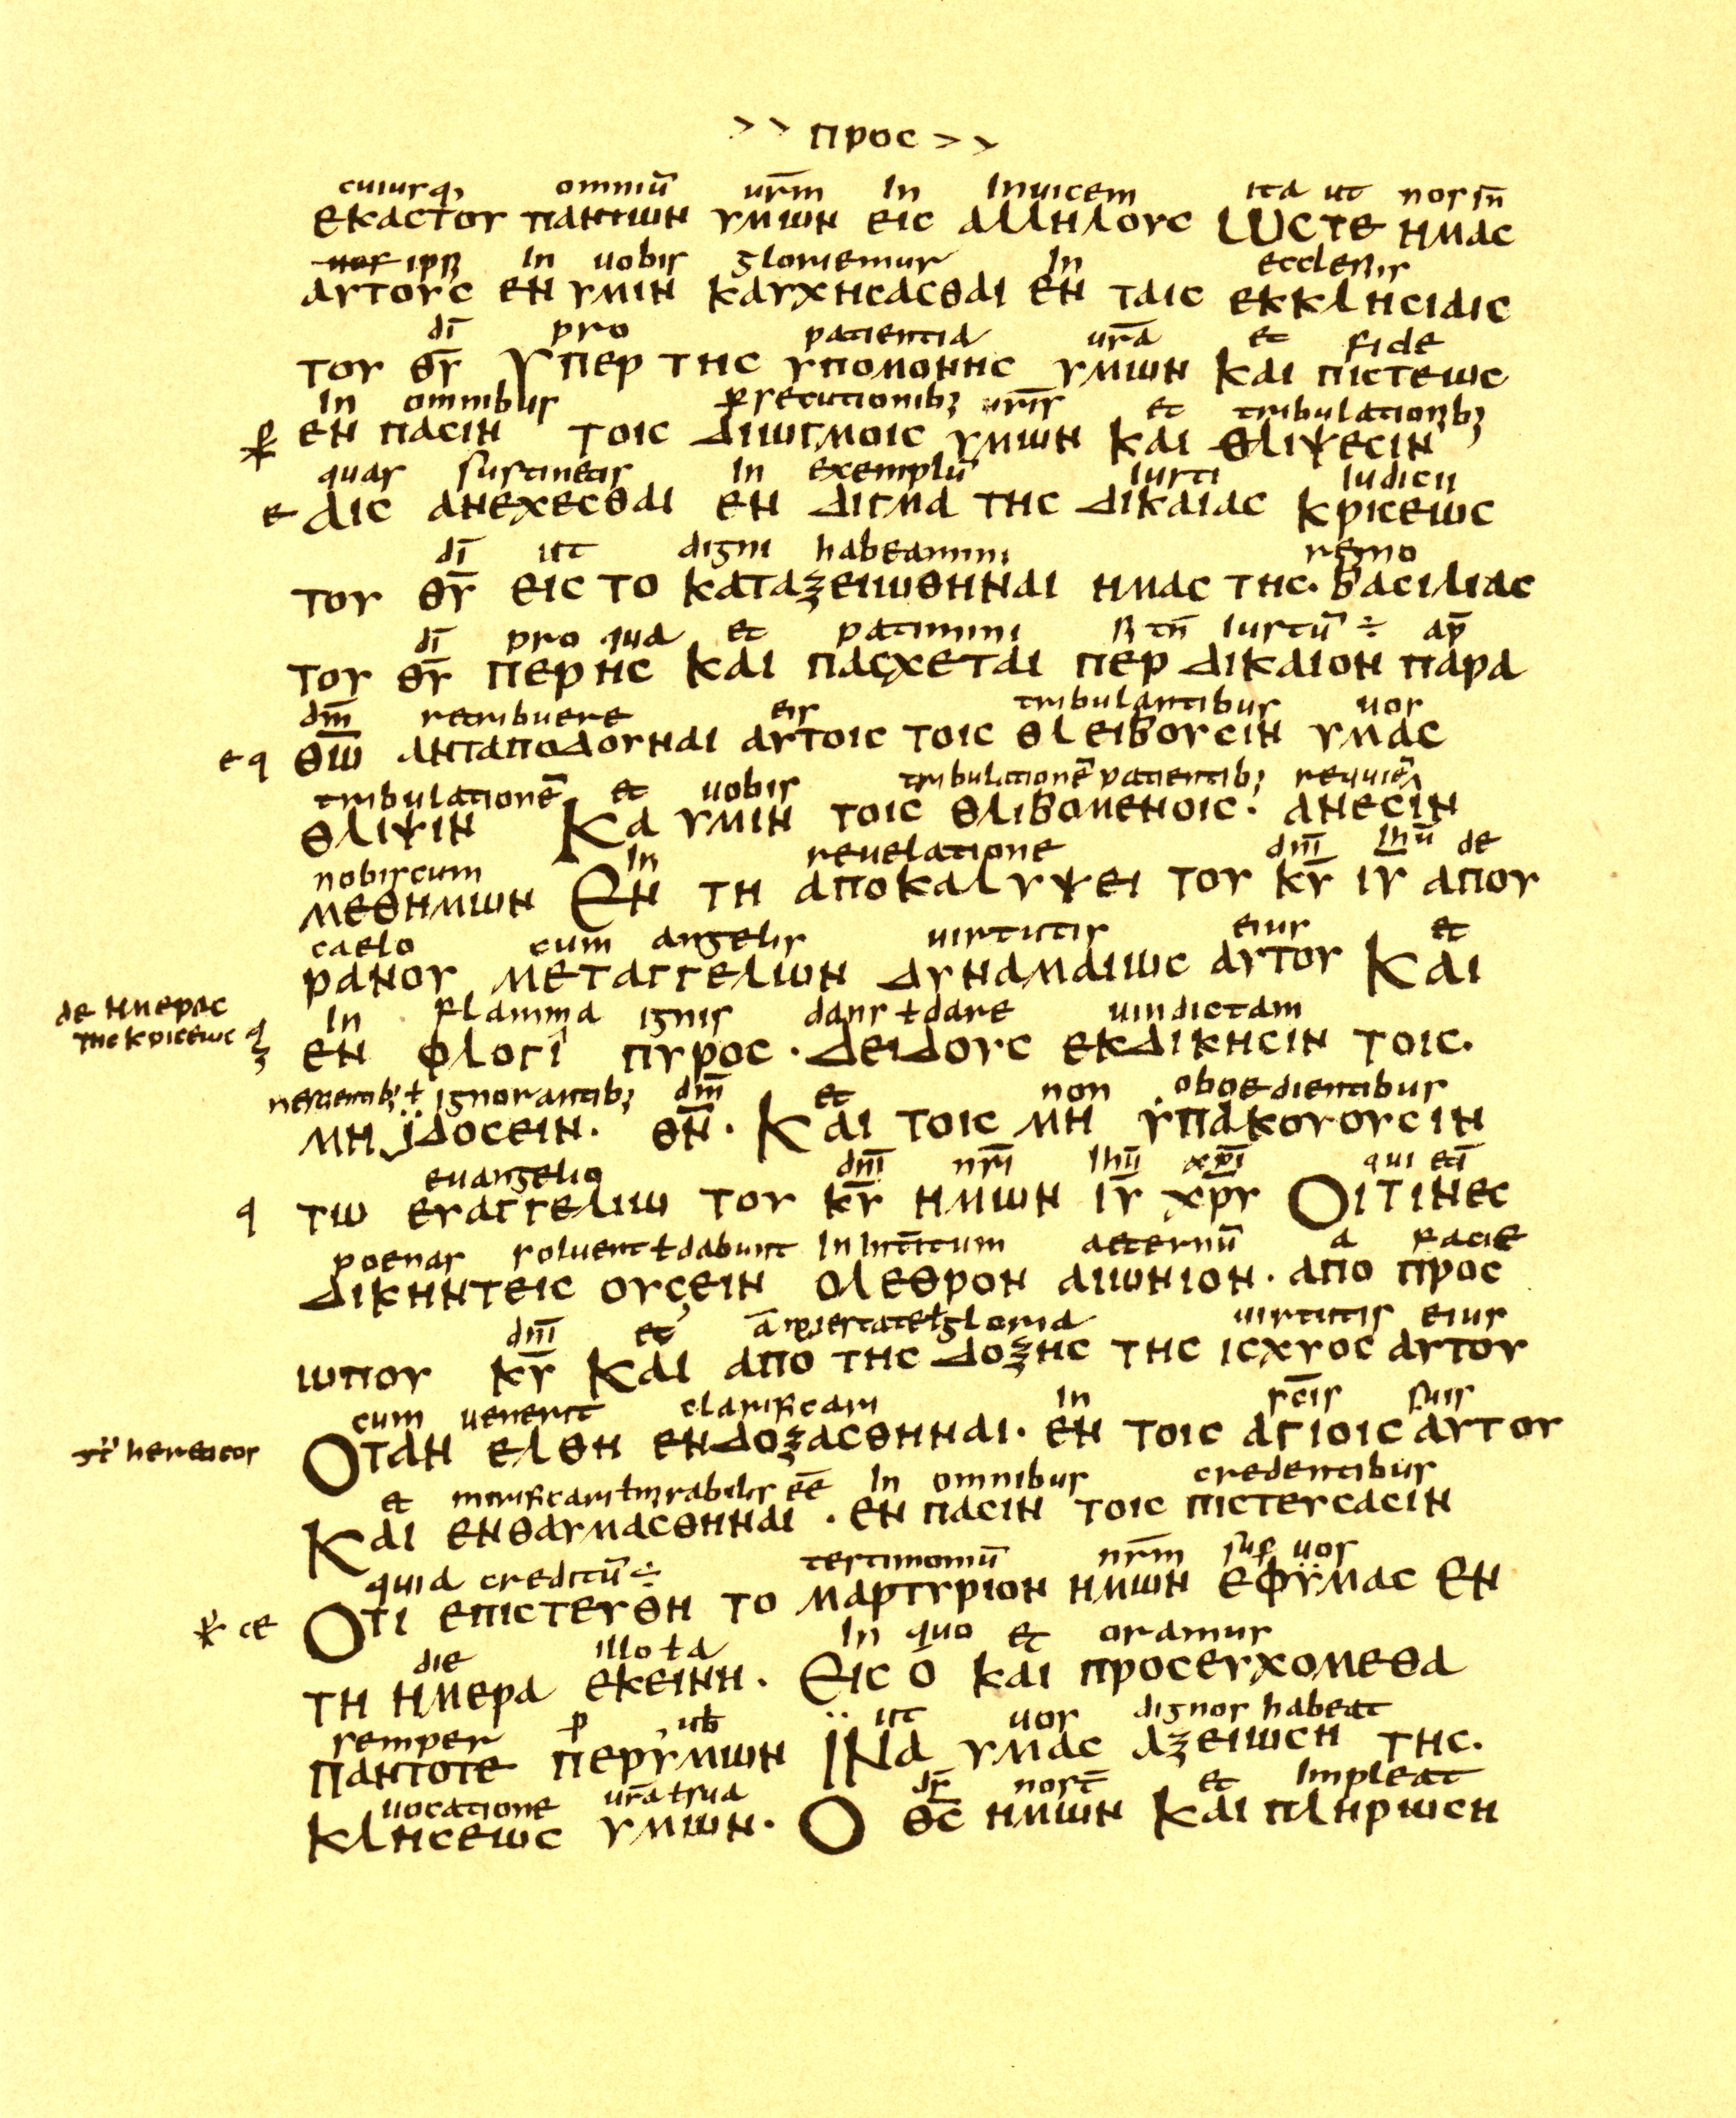 > > προс > >
cuiusq; omniū ur̄m In Inuicem ita ut nos in̄
εκαστου παντων υμων εις αλληλους ωστε ημας
nos ips; In uobis gloriemur In ecclesiis
αυτους εν υμιν καυχησασθαι εν ταις εκκλησιαις
dī pro patientia ur̄a et fide
του θ̄ῡ Υπερ της υπομονης υμων και πιστεως
In omnibus ꝑsecutionib; ur̄is et tribulationib;
εν πασιν τοις διωγμοις υμων και θλιψεσιν
quas sustinetis In exemplū iusti Iudicii
ε αις ανεχεσθαι εν διγμα της δικαιας κρισεως
dī ut digni habeamini regno
του θ̄ῡ εις το καταξειωθηναι ημας της· βασιλιας
dī pro qua et patimini si tn̄ Iustū ÷ ap̄
του θ̄ῡ περ ης και πασχεται περ δικαιον παρα
dm̄ retribuere eis tribulantibus uos
ε q θ̄ω̄ ανταποδουναι αυτοις τοις θλειβουσιν υμας
tribulationē et uobis tribulationē patientib; requiē
θλιψιν Κα υμιν τοις θλιβομενοις· ανεσιν
nobiscum In reuelatione dnī Ihū de
μεθημων Εν τη αποκαλυψει του κ̄ῡ ῑῡ απου
caelo cum angelis uirtutis eius et
ρανου μεταγγελων δυναμαιως αυτου Και
de ημερας
της κρισεως
In flamma ignis dans ł dare uindictam
εν φλογι πυρος · δειδους εκδικησιν τοις·
nescientib; ł ignorantib; dm̄ et non oboedientibus
μη ϊδοσειν· θ̄ν̄· Και τοις μη υπακουουσιν
euangelio dnī nr̄i Ihū xp̄i qui etī
q τω ευαγγελιω του κ̄ῡ ημων ῑῡ χ̄ρ̄ῡ Οιτινες
poenas soluent ł dabunt In Intēritum aeternū a facie
δικηντεις ουσειν ολεθρον αιωνιον· απο προσ
dnī et gloria uirtutis eius
ωπου κ̄ῡ και απο της δοξης της ισχυος αυτου
cum uenerit clarificari In sc̄is suis
hereticos Οταν ελθη ενδοξασθηναι· εν τοις αγιοις αυτου
et mirificari ł mirabilis eē In omnibus credentibus
Και ενθαυμασθηναι · εν πασιν τοις πιστευσασιν
quia creditū ÷ testimoniū nr̄m sup̄ uos
ce Οτι επιστευθη το μαρτυριον ημων εφυμας Εν
die illo ł a In quo et oramus
τη ημερα εκεινη. Εις ο και προσευχομεθα
semper ꝑ uob̄ ut uos dignos habeat
παντοτε περυμων Ϊνα υμας αξειωση της.
uocatione ur̄a ł sua ds̄ nost̄ et Impleat
κλησεως υμων. Ο θ̄ς̄ ημων Και πληρωση